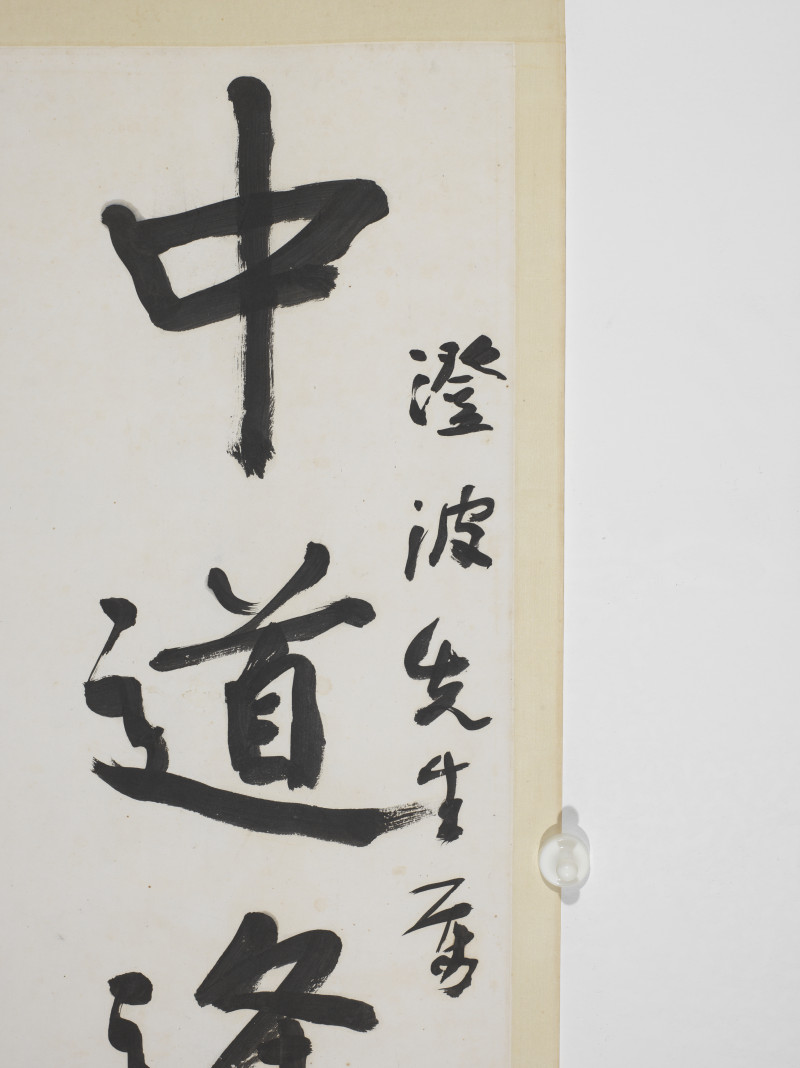 澄波先生
中道